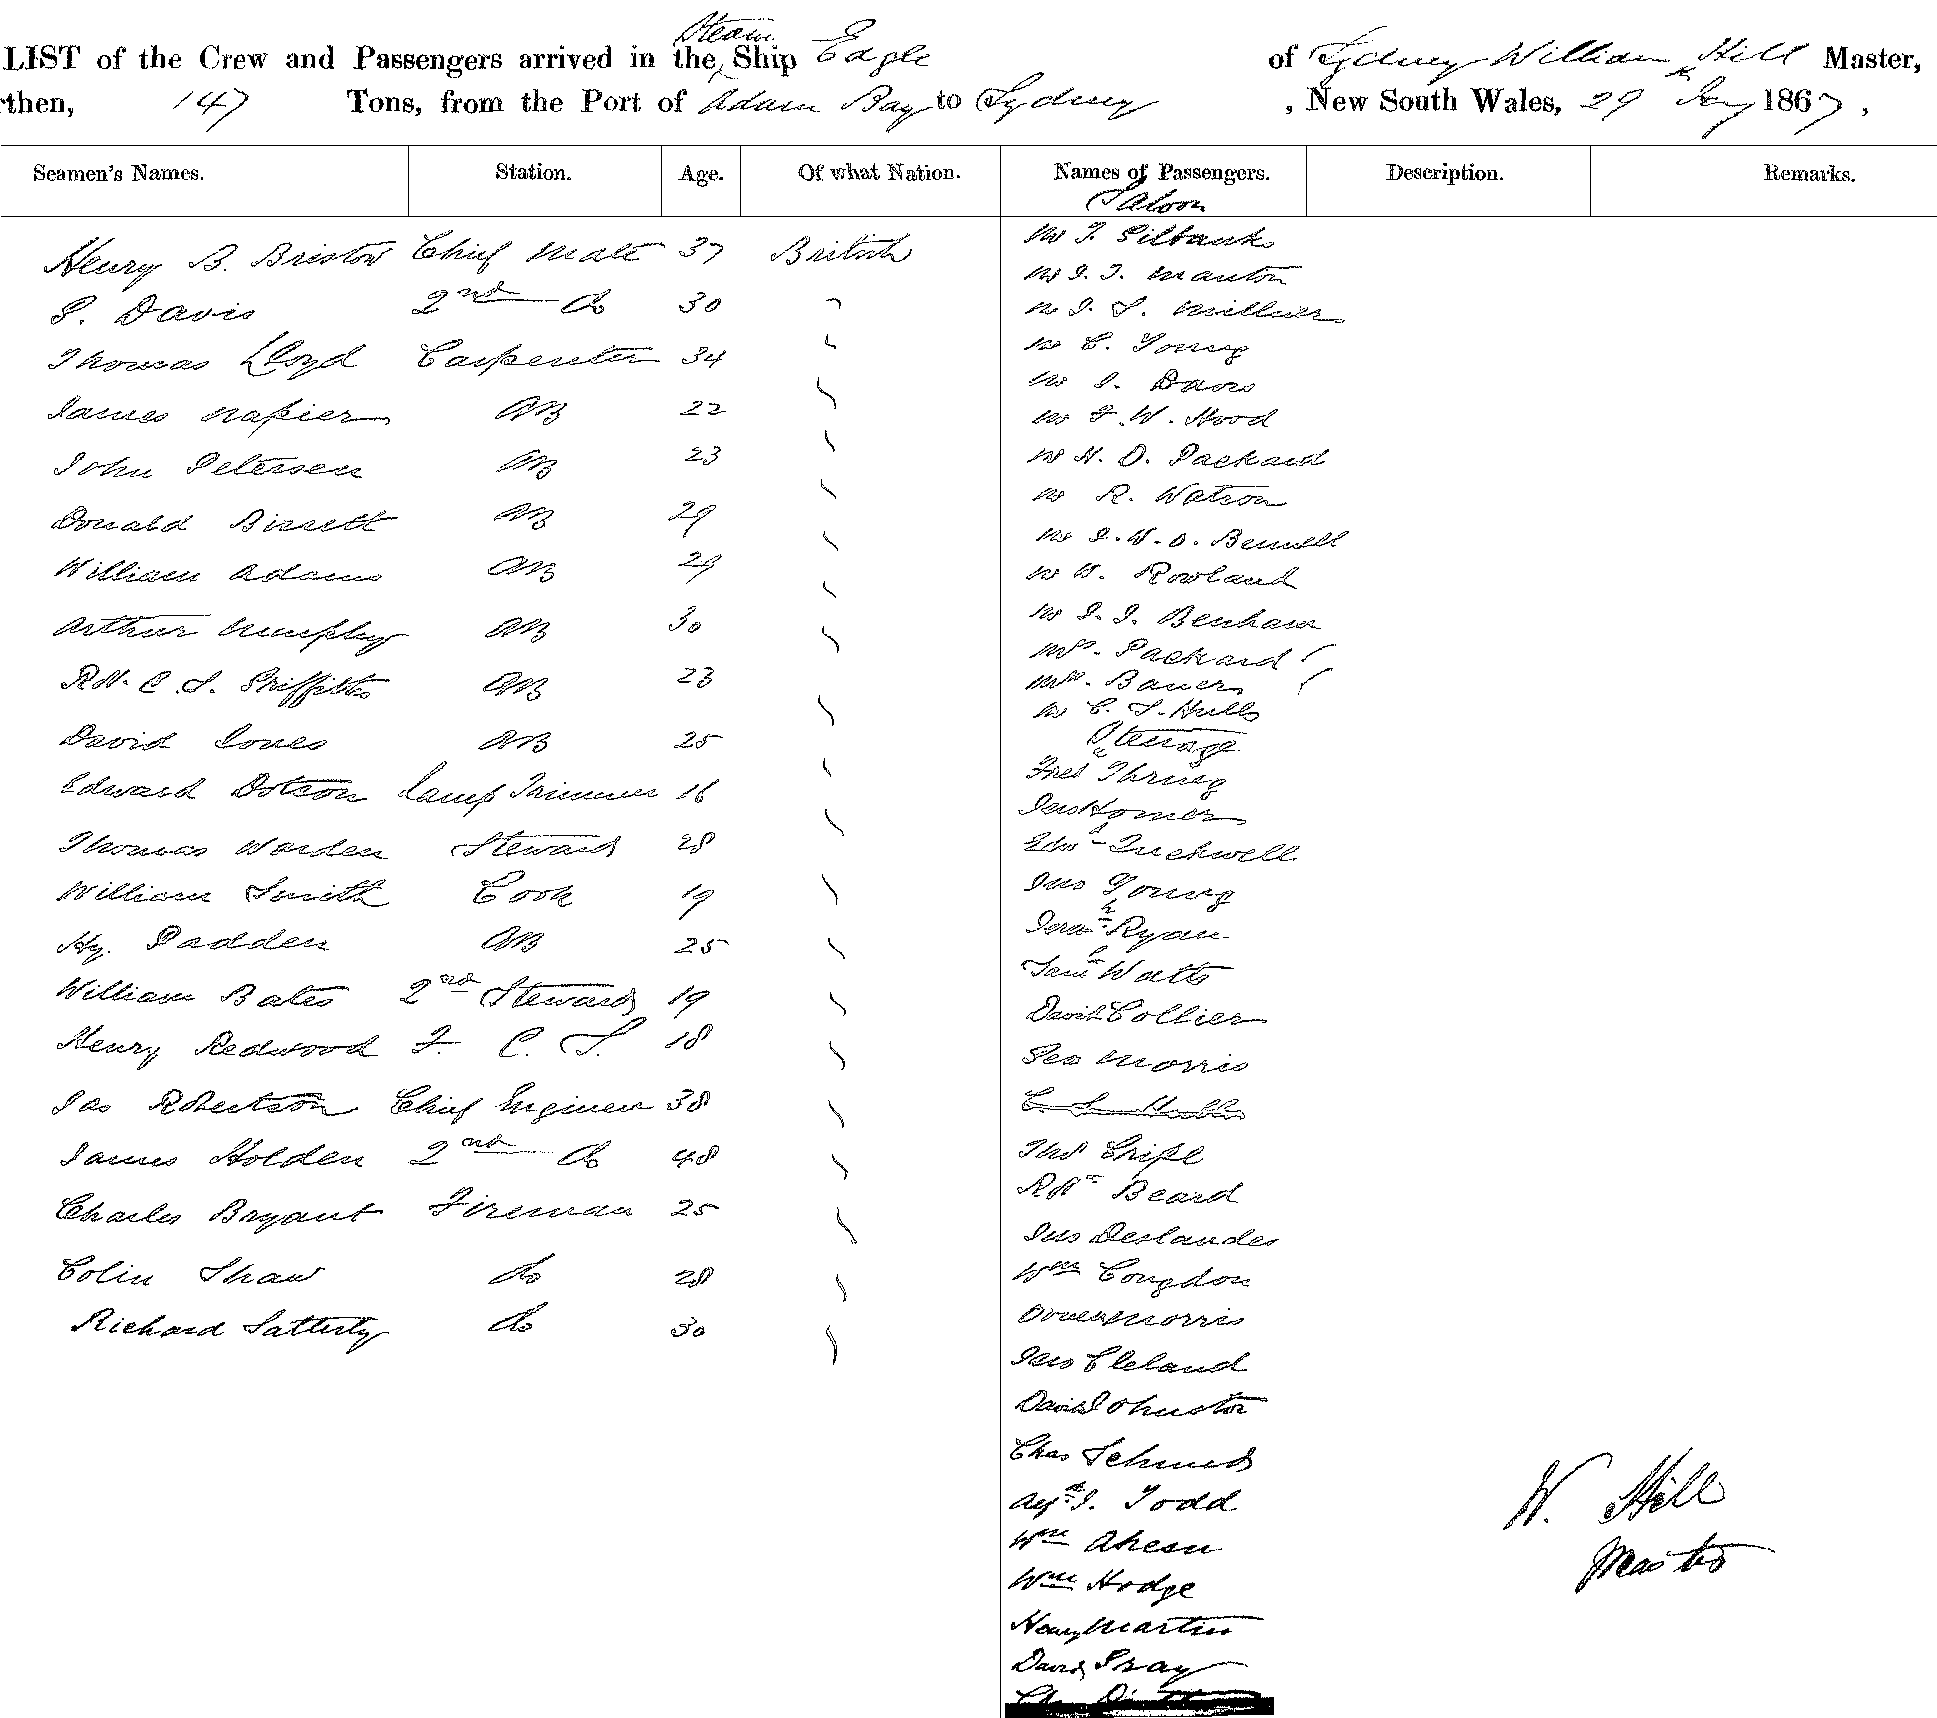 LIST of the Crew and Passengers arrived in the Steam Ship Eagle of Sydney William Hill Master,
then, 147 Tons, from the Port of Adam Bay to Sydney, New South Wales, 29 Jany 1867,
Seamen's Names. Station. Age. Of what Nation. Names of Passengers. Description. Remarks.
Saloon
Henry B. Bristow Chief Mate 37 British
S. Davis 2nd Do 30 "
Thomas Lloyd Carpenter 34 "
James Napier AB 22
John Petersen AB 23
Donald Bissett AB 29
William Adams AB 29
Arthur Humphry AB 30
Rd. C. S. Griffiths AB 23
David Jones AB 25
Edward Dotson Lamp Trimmer 16
Thomas Warden Steward 28
William Smith Cook 19
Hy. Padden AB 25
William Bates 2nd Steward 19
Henry Redwood F. C. S. 18
Jas Robertson Chief Engineer 38
James Holden 2nd Do 48
Charles Bryant Fireman 25
Colin Shaw Do 28
Richard Satterly Do 30
Mr T. Gilbanks
Mr J. T. Manton
Mr J. S. Millner
Mr C. Young
Mr J. Davis
Mr F. W. Hood
Mr H. D. Packard
Mr R. Watson
Mr J. W. O. Bennett
Mr W. Rowland
Mr J. J. Benham
Mrs. Packard
Mrs. Bauer
Mr C. S. Hulls
Steerage
Fred Thring
Jno Homer
Edwd Tuckwell
Jno Young
Jerh Ryan
Saml Watts
David Collier
Geo Morris
C. S. Hulls
Rdt Beard
Jno Deslandes
Wm Congdon
Owen Morris
Jno Cleland
David Johnston
Chas Schmidt
Alfd J. Todd
Wm Ahern
Wm Hodge
Henry Martin
David Gray
W. Hill
Master